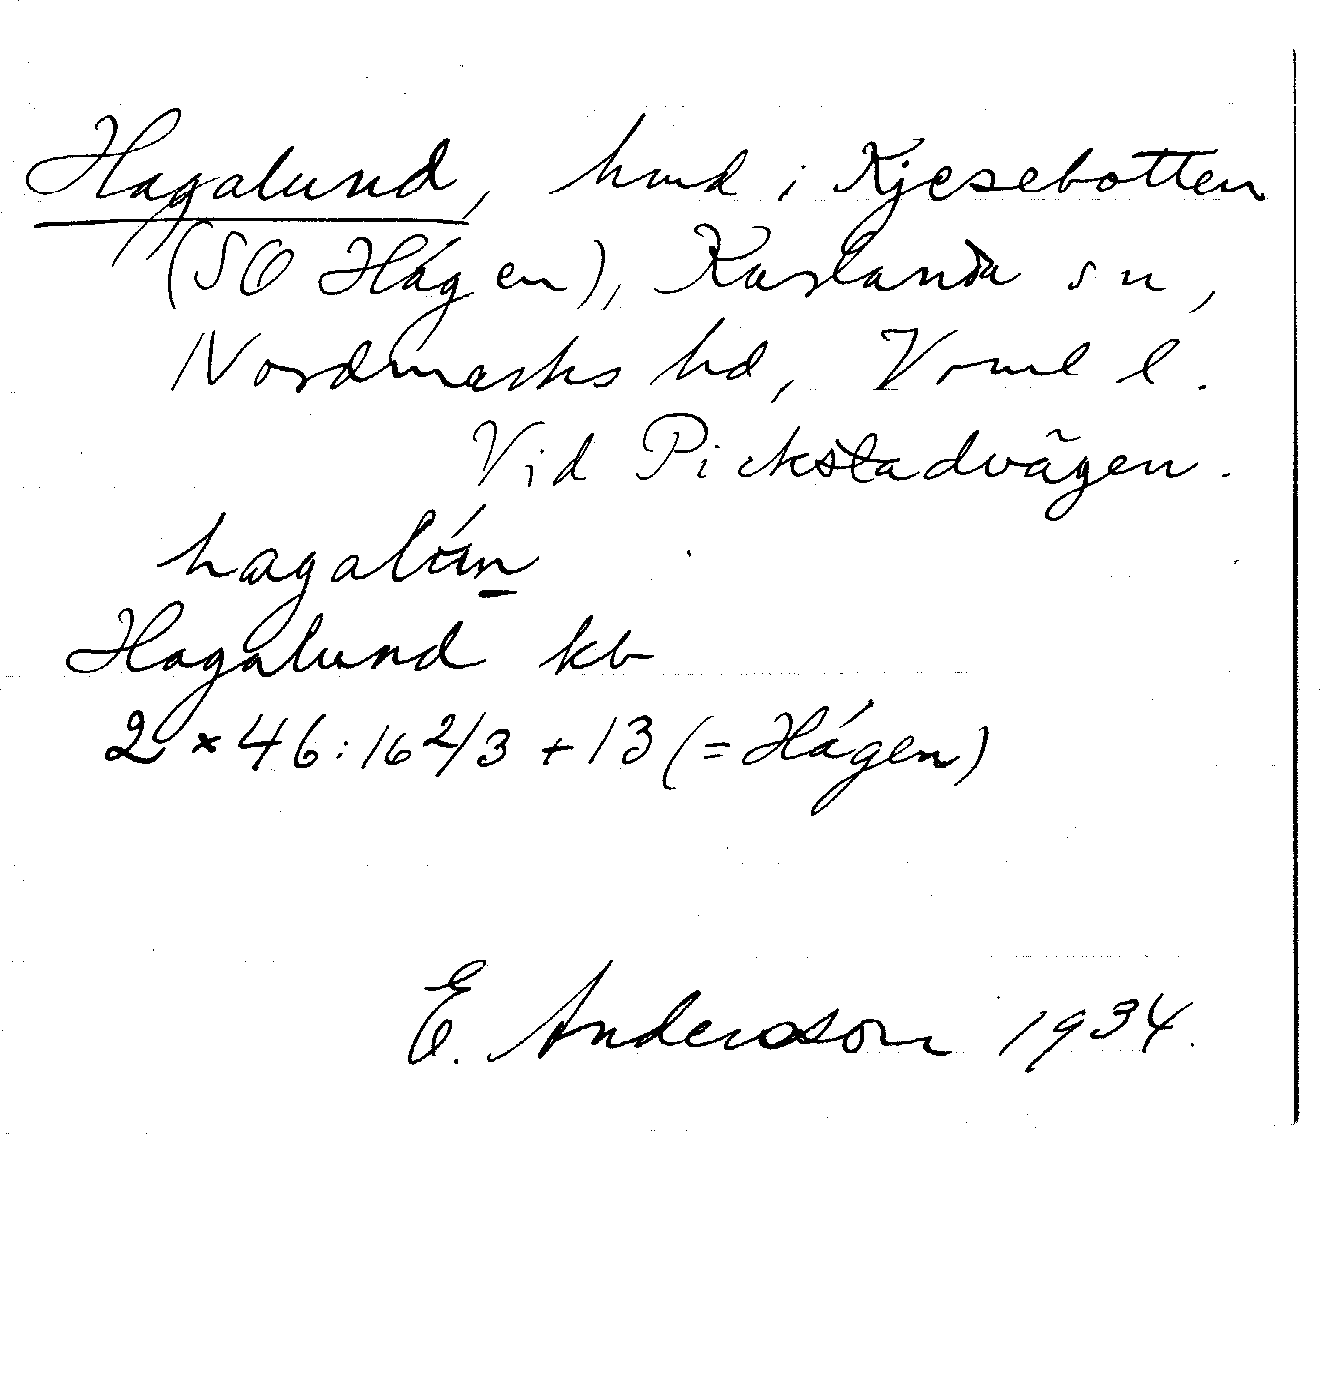 Hagalund, hmd i Kjesebotten
(SO Hágen), Karlanda sn,
Nordmarks hd, Vrml l.
Vid Pickstadvägen.
hagalún
Hagalund kb
2 × 46:16 2/3 + 13 (= Hágen)
E. Andersson 1934.